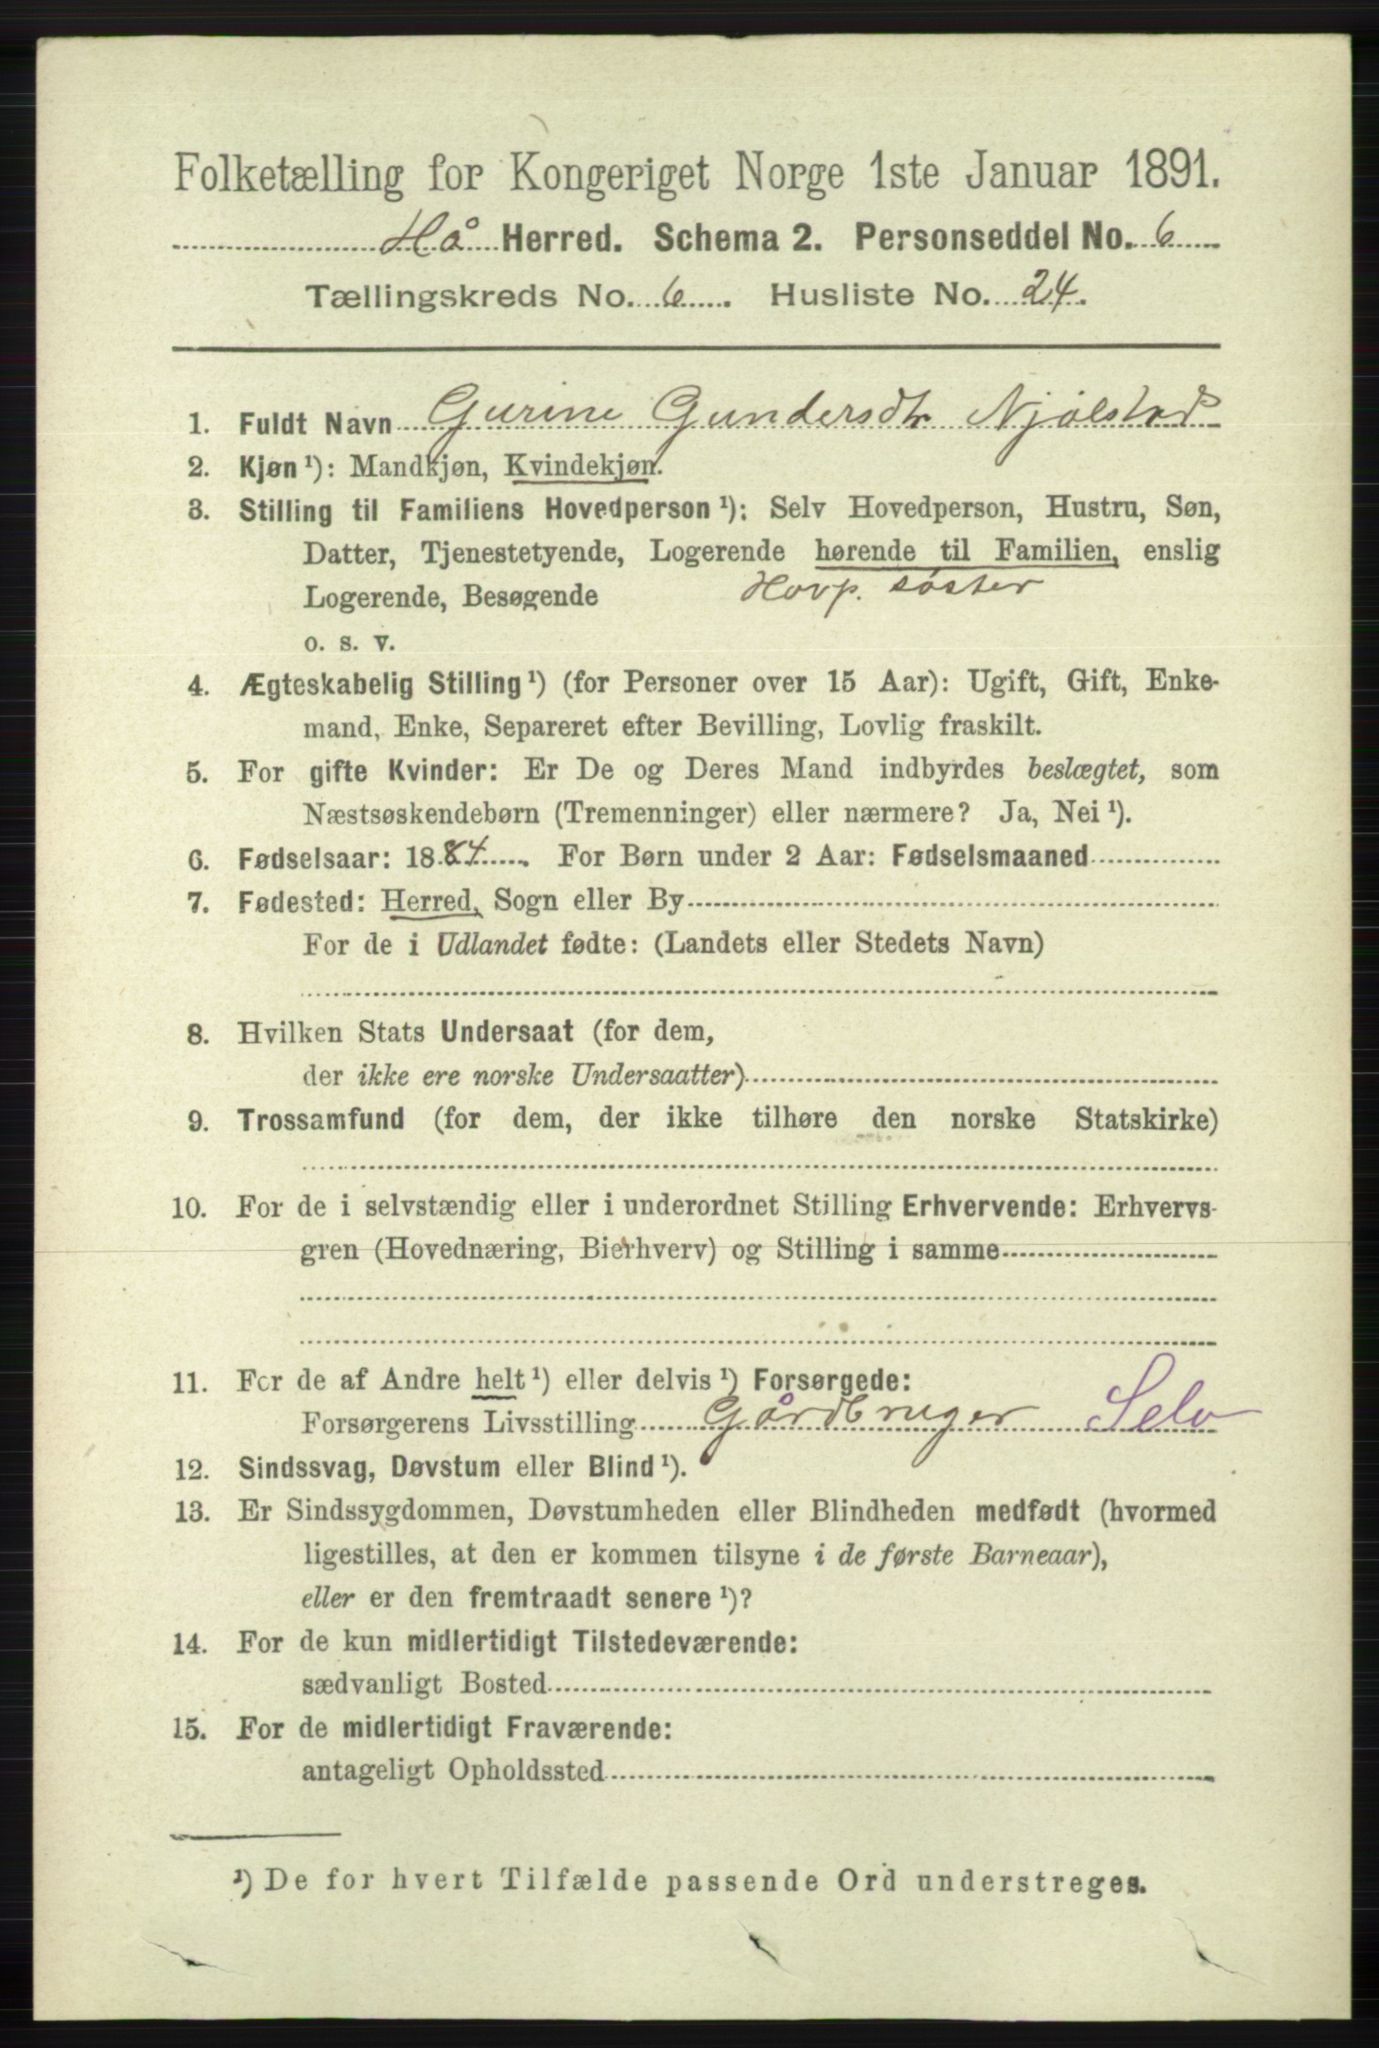 Folketælling for Kongeriget Norge 1ste Januar 1891.
Hå Herred. Schema 2. Personseddel No. 6
Tællingskreds No. 6. Husliste No. 24.
1. Fuldt Navn Gurine Gundersdtr Njølstad
2. Kjøn ¹): Mandkjøn, Kvindekjøn.
3. Stilling til Familiens Hovedperson ¹): Selv Hovedperson, Hustru, Søn,
Datter, Tjenestetyende, Logerende hørende til Familien, enslig
Logerende, Besøgende Hovp. søster
o. s. v.
4. Ægteskabelig Stilling ¹) (for Personer over 15 Aar): Ugift, Gift, Enke-
mand, Enke, Separeret efter Bevilling, Lovlig fraskilt.
5. For gifte Kvinder: Er De og Deres Mand indbyrdes beslægtet, som
Næstsøskendebørn (Tremenninger) eller nærmere? Ja, Nei ¹).
6. Fødselsaar: 1884. For Børn under 2 Aar: Fødselsmaaned
7. Fødested: Herred, Sogn eller By
For de i Udlandet fødte: (Landets eller Stedets Navn)
8. Hvilken Stats Undersaat (for dem,
der ikke ere norske Undersaatter)
9. Trossamfund (for dem, der ikke tilhøre den norske Statskirke)
10. For de i selvstændig eller i underordnet Stilling Erhvervende: Erhvervs-
gren (Hovednæring, Bierhverv) og Stilling i samme
11. For de af Andre helt ¹) eller delvis ¹) Forsørgede:
Forsørgerens Livsstilling Gårdbruger Selv
12. Sindssvag, Døvstum eller Blind ¹).
13. Er Sindssygdommen, Døvstumheden eller Blindheden medfødt (hvormed
ligestilles, at den er kommen tilsyne i de første Barneaar),
eller er den fremtraadt senere ¹)?
14. For de kun midlertidigt Tilstedeværende:
sædvanligt Bosted
15. For de midlertidigt Fraværende:
antageligt Opholdssted
¹) De for hvert Tilfælde passende Ord understreges.